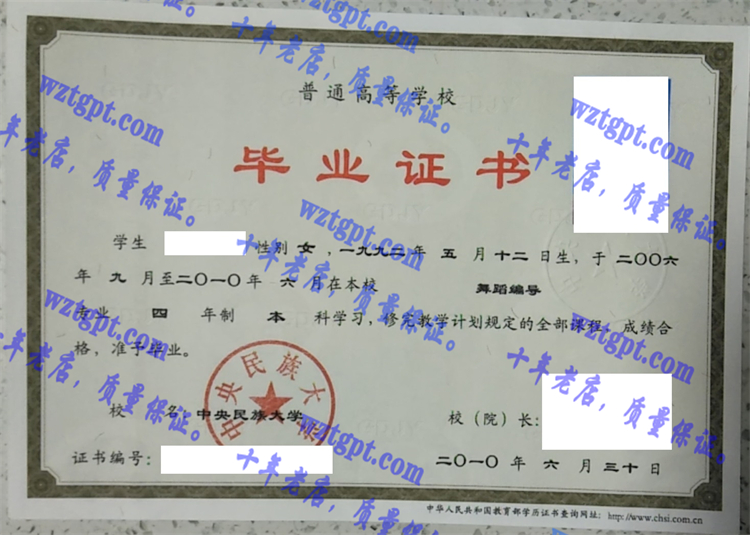 十年老店，质量保证。
wztgpt.com
十年老店，质量保证。
普通高等学校
wztgpt.com
十年老店，质量保证。
wztgpt.com
十年老店，质量保证。
毕业证书
wztgpt.com
十年老店，质量保证。
学生 性别 女，一九九二年 五 月 十二 日生，于 二〇〇六
年 九 月至二〇一〇年 六 月在本校 舞蹈编号
专业 四 年制 本 科学习，修完教学计划规定的全部课程，成绩合
格，准予毕业。
wztgpt.com
十年老店，质量保证。
wztgpt.com
十年老店，质量保证。
中央民族大学
校 名：中央民族大学 校（院）长：
wztgpt.com
十年老店，质量保证。
证书编号： 二〇一〇 年 六 月 三十 日
中华人民共和国教育部学历证书查询网址：http://www.chsi.com.cn